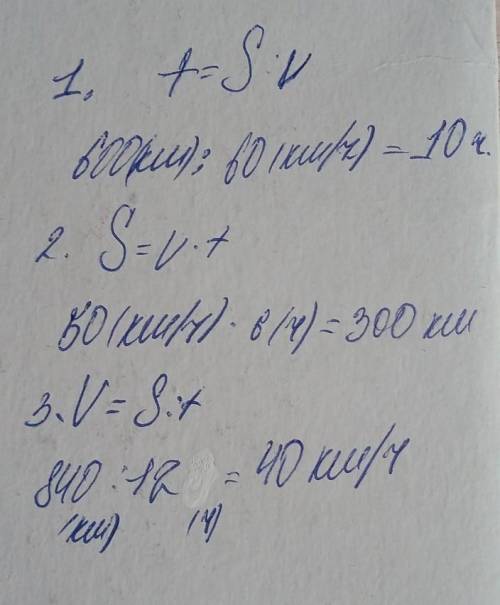 1. t = S : v
600(км) : 60 (км/ч) = 10 ч.
2. S = v · t
50 (км/ч) · 6 (ч) = 300 км
3. V = S : t
840 : 12 = 40 км/ч
(км) (ч)